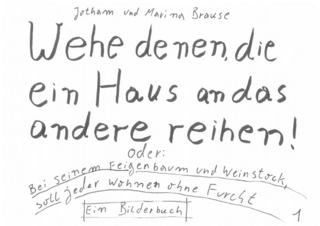 Jotham und Marina Brause
Wehe denen, die
ein Haus an das
andere reihen!
oder:
Bei seinem Feigenbaum und Weinstock,
soll jeder wohnen ohne Furcht
Ein Bilderbuch
1